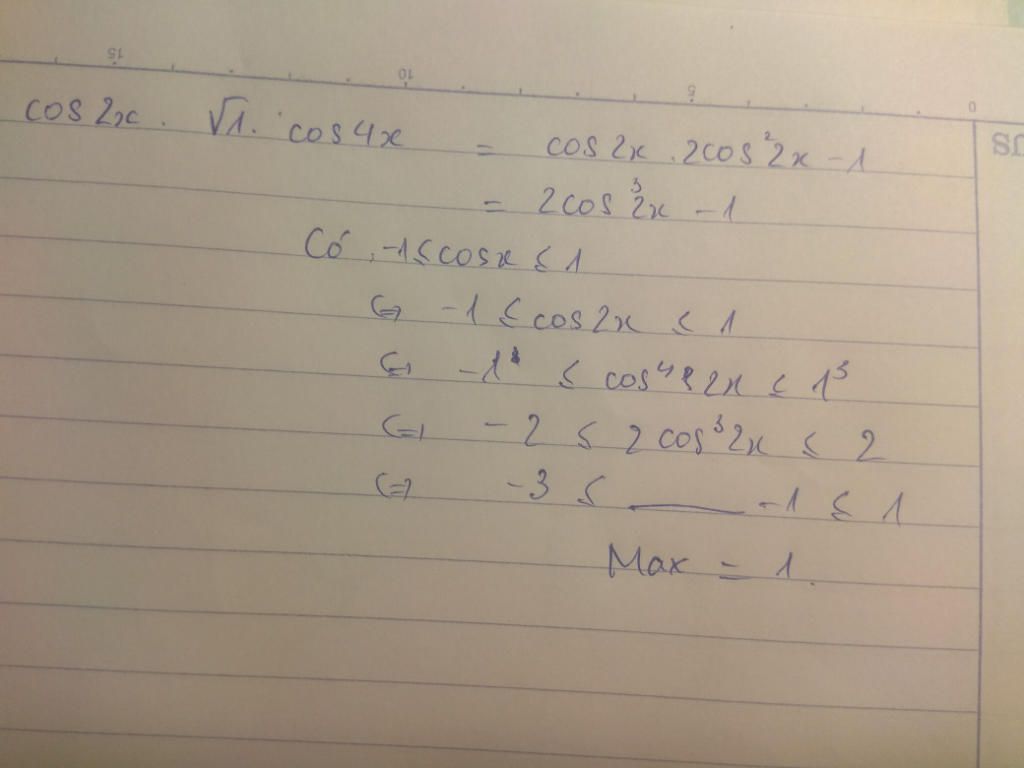 15 10 5 0
US
cos 2x . √1 . cos 4x = cos 2x . 2cos²2x - 1
= 2cos³2x - 1
Có, -1 ≤ cosx ≤ 1
⇔ -1 ≤ cos2x ≤ 1
⇔ -1³ ≤ cos⁴ 2x ≤ 1³
⇔ -2 ≤ 2cos³2x ≤ 2
⇔ -3 ≤ ____ -1 ≤ 1
Max = 1.